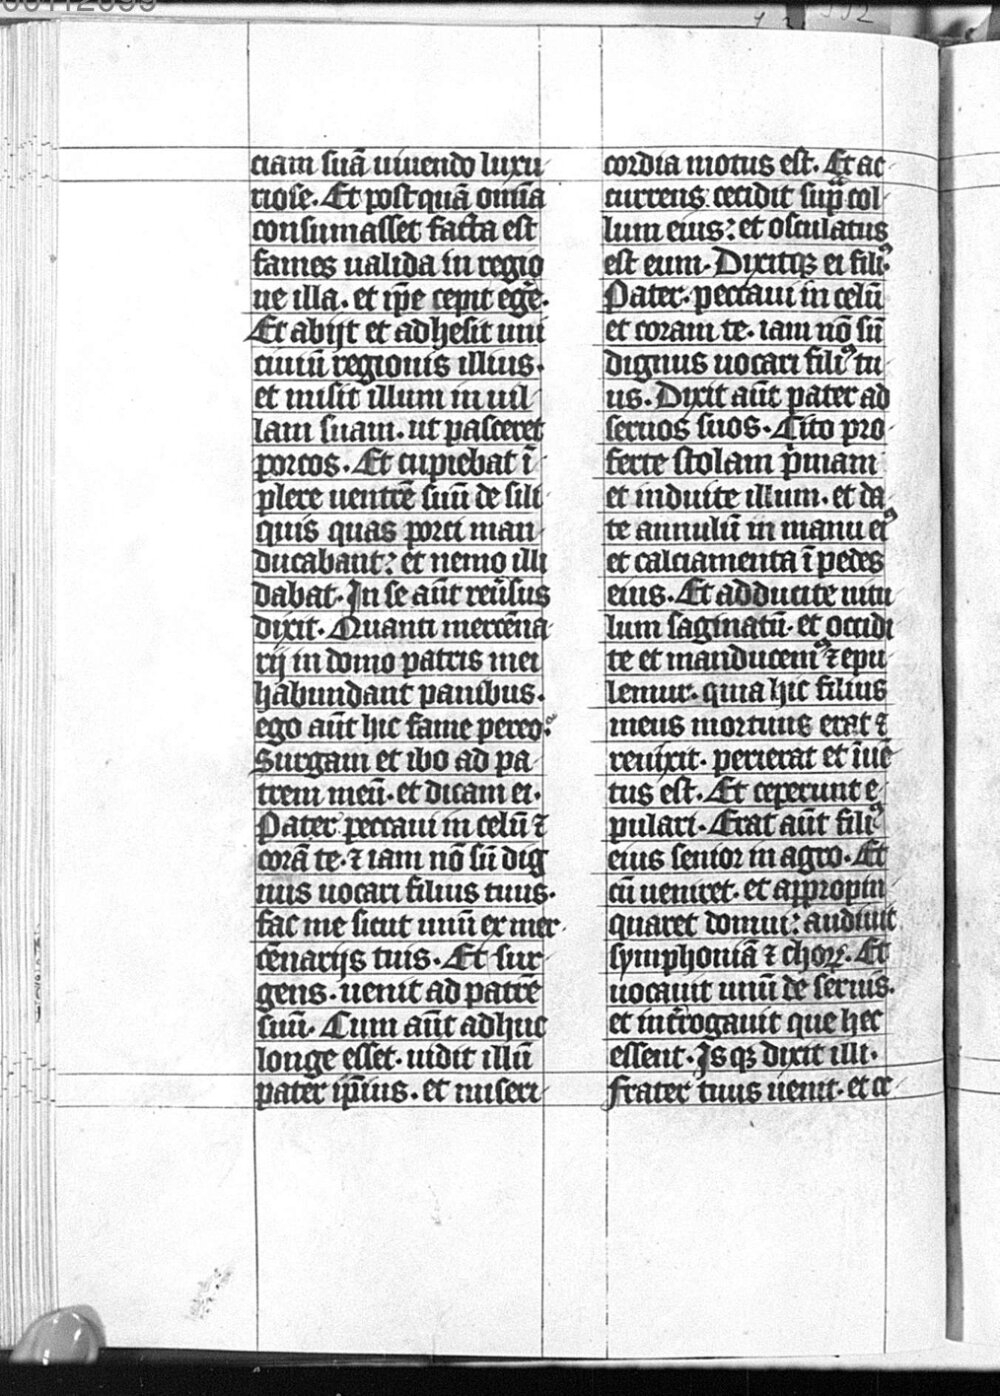 ciam suā uiuendo luxu
riose. Et postquā om̄ia
consumasset facta est
fames ualida in regio
ne illa. et ip̄e cepit eḡe.
Et abijt et adhesit uni
ciuiū regionis illius.
et misit illum in uil
lam suam. ut pasceret
porcos. Et cupiebat ī
plere uentrē suū de sili
quis quas porci man
ducabant: et nemo illi
dabat. In se aūt reūsus
dixit. Quanti mercēna
rij in domo patris mei
habundant panibus.
ego aūt hic fame pereo.
Surgam et ibo ad pa
trem meū. et dicam ei.
Pater peccaui in celū ⁊
corā te. ⁊ iam nō sū dig
nus uocari filius tuus.
fac me sicut unū ex mer
cēnarijs tuis. Et sur
gens. uenit ad patrē
suū. Cum aūt adhuc
longe esset. uidit illū
pater ip̄ius. et miseri
cordia motus est. Et ac
currens cecidit sup̄ col
lum eius: et osculatus
est eum. Dixitqꝫ ei filiꝰ.
Pater. peccaui in celū
et coram te. iam nō sū
dignus uocari filiꝰ tu
us. Dixit aūt pater ad
seruos suos. Cito pro
ferte stolam p̄mam
et induite illum. et da
te annulū in manu eiꝰ
et calciamenta ī pedes
eius. Et adducite uitu
lum saginatū. et occidi
te et manducemꝰ ⁊ epu
lemur. quia hic filius
meus mortuus erat ⁊
reuixit. perierat et īuē
tus est. Et ceperunt e
pulari. Erat aūt filiꝰ
eius senior in agro. Et
cū ueniret. et appropin
quaret domui: audiuit
symphoniā ⁊ choꝝ. Et
uocauit unū de seruis.
et int̄rogauit que hec
essent. Isqꝫ dixit illi.
Frater tuus uenit. et oc